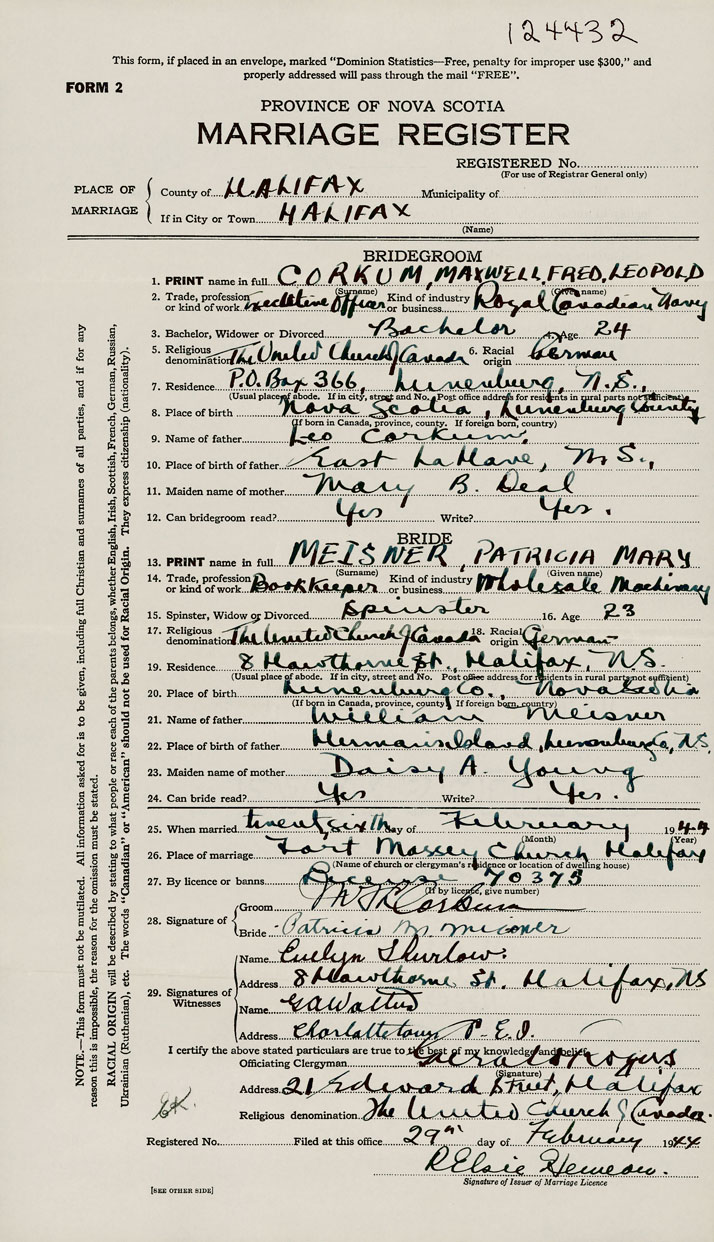 124432
This form, if placed in an envelope, marked "Dominion Statistics—Free, penalty for improper use $300," and
properly addressed will pass through the mail "FREE".
FORM 2
PROVINCE OF NOVA SCOTIA
MARRIAGE REGISTER
REGISTERED No.
(For use of Registrar General only)
PLACE OF MARRIAGE
County of HALIFAX Municipality of
If in City or Town HALIFAX
(Name)
BRIDEGROOM
1. PRINT name in full CORKUM, MAXWELL, FRED, LEOPOLD
(Surname) (Given name)
2. Trade, profession or kind of work Executive Officer Kind of industry or business Royal Canadian Navy
3. Bachelor, Widower or Divorced Bachelor 4. Age 24
5. Religious denomination The United Church of Canada 6. Racial origin German
7. Residence P.O. Box 366, Lunenburg, N.S.,
(Usual place of abode. If in city, street and No. Post office address for residents in rural parts not sufficient)
8. Place of birth Nova Scotia, Lunenburg County
(If born in Canada, province, county. If foreign born, country)
9. Name of father Leo Corkum
10. Place of birth of father East LaHave, N.S.,
11. Maiden name of mother Mary B. Deal
12. Can bridegroom read? Yes Write? Yes.
BRIDE
13. PRINT name in full MEISNER, PATRICIA MARY
(Surname) (Given name)
14. Trade, profession or kind of work Bookkeeper Kind of industry or business Wholesale Machinary
15. Spinster, Widow or Divorced Spinster 16. Age 23
17. Religious denomination The United Church of Canada 18. Racial origin German
19. Residence 8 Hawthorne St., Halifax, N.S.
(Usual place of abode. If in city, street and No. Post office address for residents in rural parts not sufficient)
20. Place of birth Lunenburg Co., Nova Scotia
(If born in Canada, province, county. If foreign born, country)
21. Name of father William Meisner
22. Place of birth of father Hermans Island, Lunenburg Co, N.S.
23. Maiden name of mother Daisy A. Young
24. Can bride read? Yes Write? Yes.
25. When married twenty sixth day of February 1944
(Month) (Year)
26. Place of marriage Fort Massey Church Halifax
(Name of church or clergyman's residence or location of dwelling house)
27. By licence or banns License 70375
(If by licence, give number)
28. Signature of
Groom Corkum
Bride Patricia M. Meisner
29. Signatures of Witnesses
Name Evelyn Thurlow.
Address 8 Hawthorne St. Halifax, NS
Name
Address Charlottetown P.E.I.
I certify the above stated particulars are true to the best of my knowledge and belief.
Officiating Clergyman Gerald Rogers
(Signature)
Address 21 Edward Street, Halifax
Religious denomination The United Church of Canada.
Registered No. Filed at this office 29th day of February 1944
(Signature) R Elsie
Signature of Issuer of Marriage Licence
[SEE OTHER SIDE]
NOTE.—This form must not be mutilated. All information asked for is to be given, including full Christian and surnames of all parties, and if for any
reason this is impossible, the reason for the omission must be stated.
RACIAL ORIGIN will be described by stating to what people or race each of the parents belongs, whether English, Irish, Scottish, French, German, Russian,
Ukrainian (Ruthenian), etc. The words "Canadian" or "American" should not be used for Racial Origin. They express citizenship (nationality).